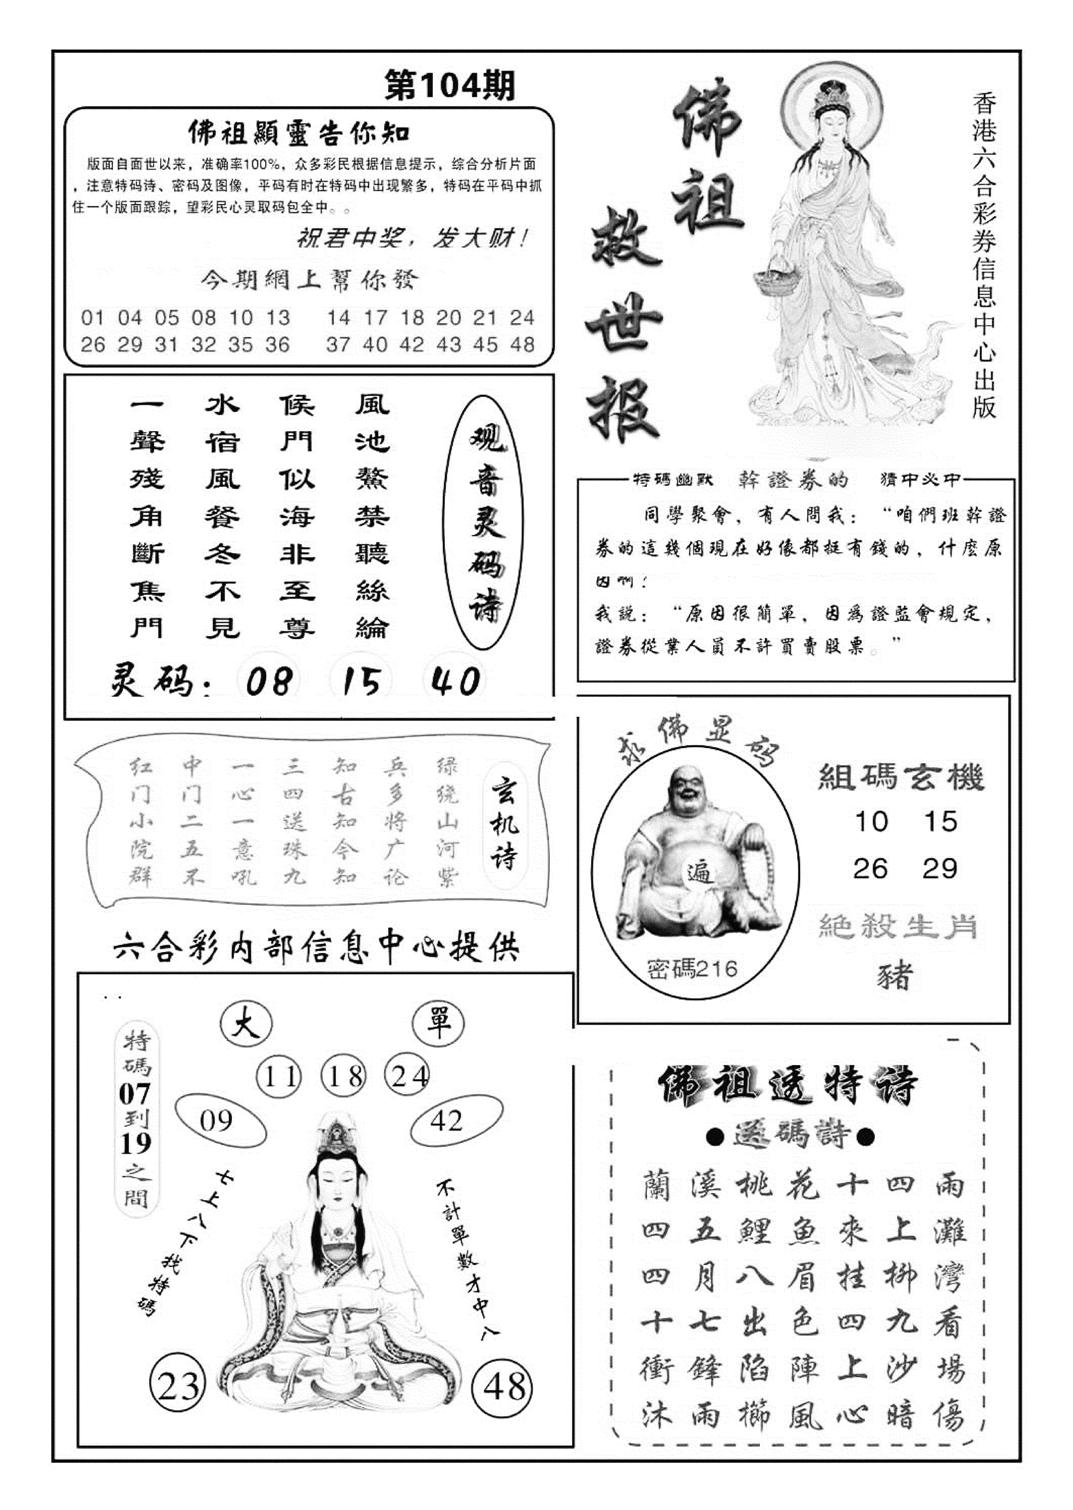 第104期
佛祖顯靈告你知
版面自面世以来，准确率100%，众多彩民根据信息提示，综合分析片面
，注意特码诗、密码及图像，平码有时在特码中出现繁多，特码在平码中抓
住一个版面跟踪，望彩民心灵取码包全中。。
祝君中奖，发大财！
今期網上幫你發
01 04 05 08 10 13 14 17 18 20 21 24
26 29 31 32 35 36 37 40 42 43 45 48
佛祖
救世报
香港六合彩券信息中心出版
观音灵码诗
風池鰲禁聽絲綸
候門似海非至尊
水宿風餐冬不見
一聲殘角斷焦門
灵码：08 15 40
特碼幽默 幹證券的 猜中必中
同學聚會，有人問我：“咱們班幹證
券的這幾個現在好像都挺有錢的，什麼原
因啊！
我説：“原因很簡單，因爲證監會規定，
證券從業人員不許買賣股票。”
玄机诗
绿绕山河紫
兵多将广论
知古知今知
三四送珠九
一心一意吼
中门二五不
红门小院群
求佛显码
遍
密碼216
組碼玄機
10 15
26 29
絕殺生肖
豬
六合彩内部信息中心提供
特碼07到19之間
大 單
11 18 24
09 42
七上八下找特碼
不計單數才中八
23 48
佛祖透特诗
●送碼詩●
蘭溪桃花十四雨
四五鯉魚來上灘
四月八眉挂柳灣
十七出色四九看
衝鋒陷陣上沙場
沐雨櫛風心暗傷